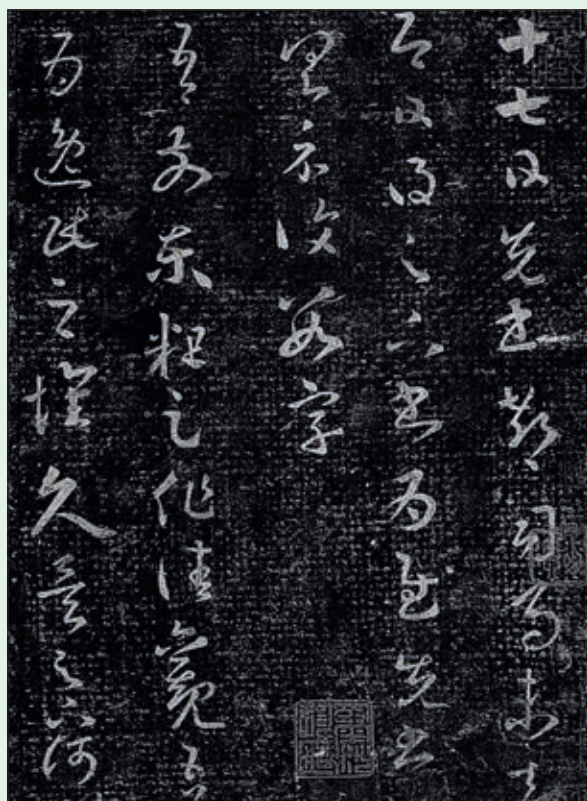 十七日先書郗司馬未去
即日得足下書為慰先書
具示復數字
吾前東粗足作佳觀吾
為逸民之懷久矣足下何